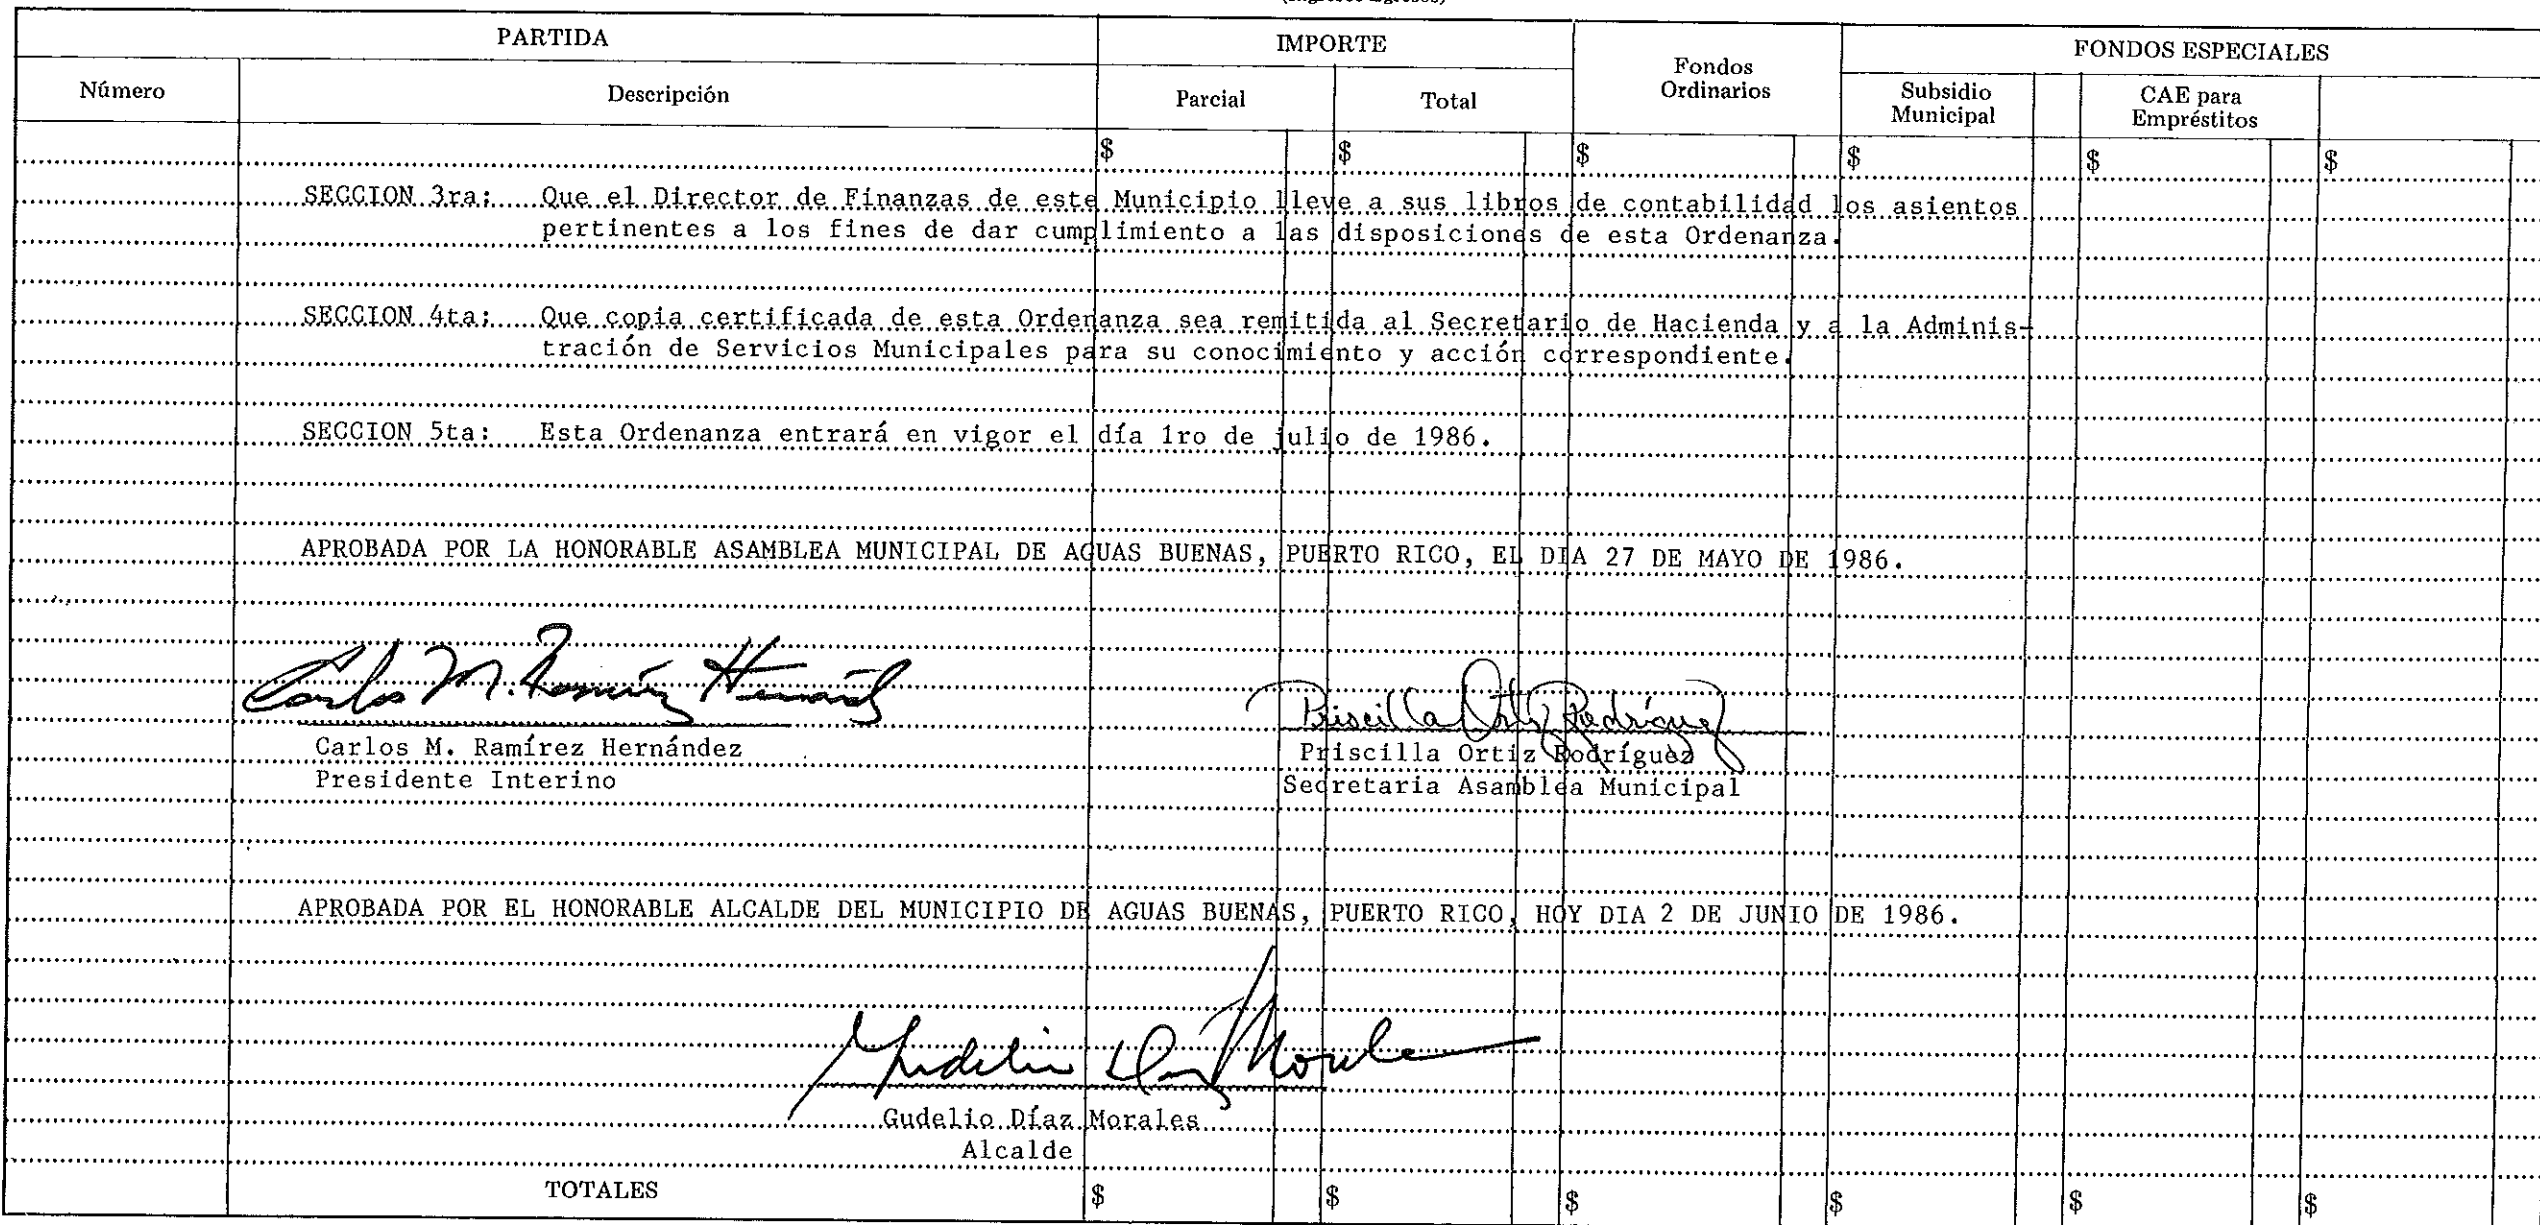 PARTIDA IMPORTE Fondos Ordinarios FONDOS ESPECIALES
Número Descripción Parcial Total Subsidio Municipal CAE para Empréstitos
$ $ $ $ $ $
SECCION 3ra: Que el Director de Finanzas de este Municipio lleve a sus libros de contabilidad los asientos
pertinentes a los fines de dar cumplimiento a las disposiciones de esta Ordenanza.
SECCION 4ta: Que copia certificada de esta Ordenanza sea remitida al Secretario de Hacienda y a la Adminis-
tración de Servicios Municipales para su conocimiento y acción correspondiente.
SECCION 5ta: Esta Ordenanza entrará en vigor el día 1ro de julio de 1986.
APROBADA POR LA HONORABLE ASAMBLEA MUNICIPAL DE AGUAS BUENAS, PUERTO RICO, EL DIA 27 DE MAYO DE 1986.
Carlos M. Ramírez Hernández Priscilla Ortiz Rodríguez
Carlos M. Ramírez Hernández Priscilla Ortiz Rodríguez
Presidente Interino Secretaria Asamblea Municipal
APROBADA POR EL HONORABLE ALCALDE DEL MUNICIPIO DE AGUAS BUENAS, PUERTO RICO, HOY DIA 2 DE JUNIO DE 1986.
Gudelio Díaz Morales
Gudelio Díaz Morales
Alcalde
TOTALES $ $ $ $ $ $